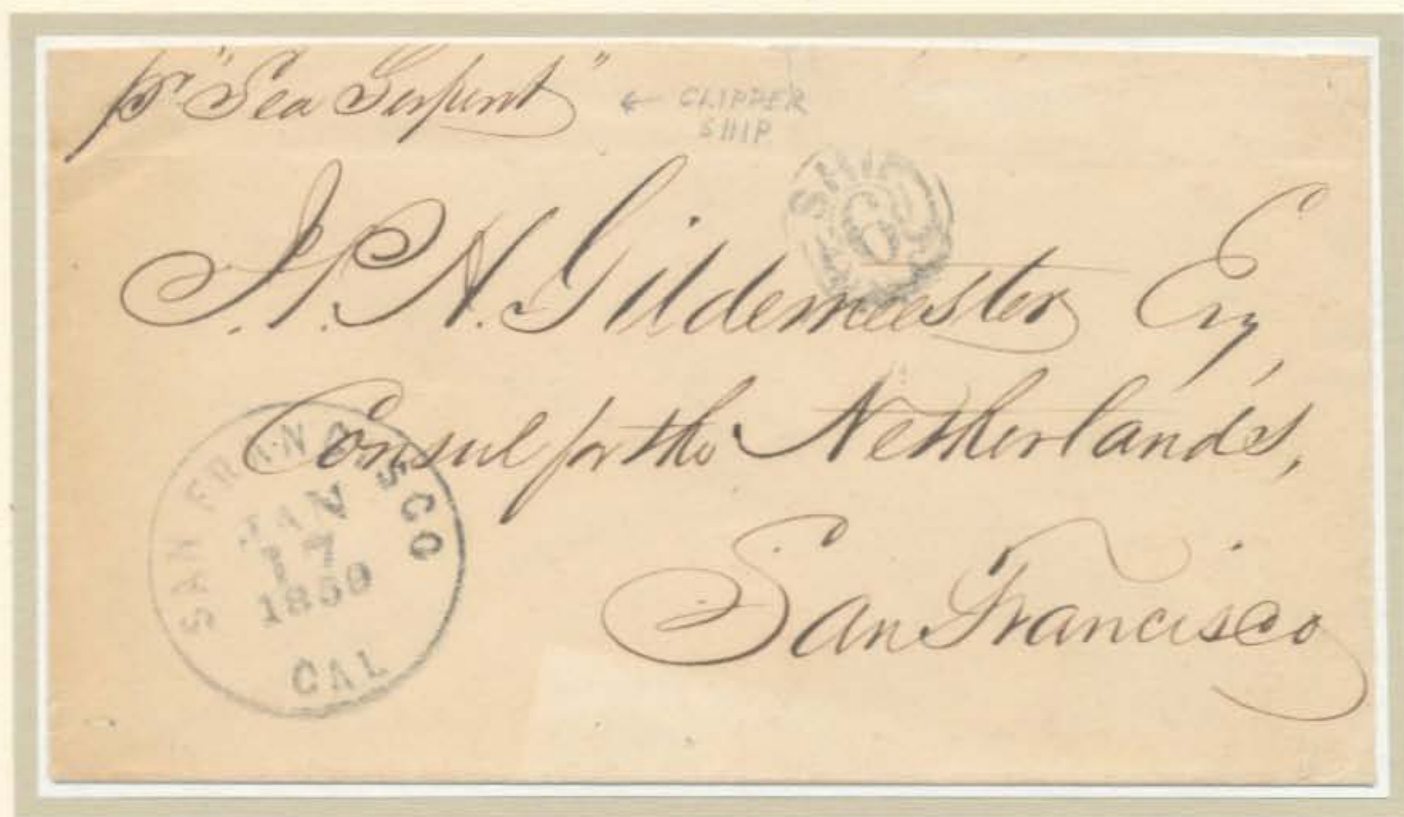 pr "Sea Serpent"
← CLIPPER
SHIP
SHIP
6
J. P. H. Gildemeester Esq,
Consul for the Netherlands,
San Francisco
SAN FRANCISCO
JAN
17
1859
CAL